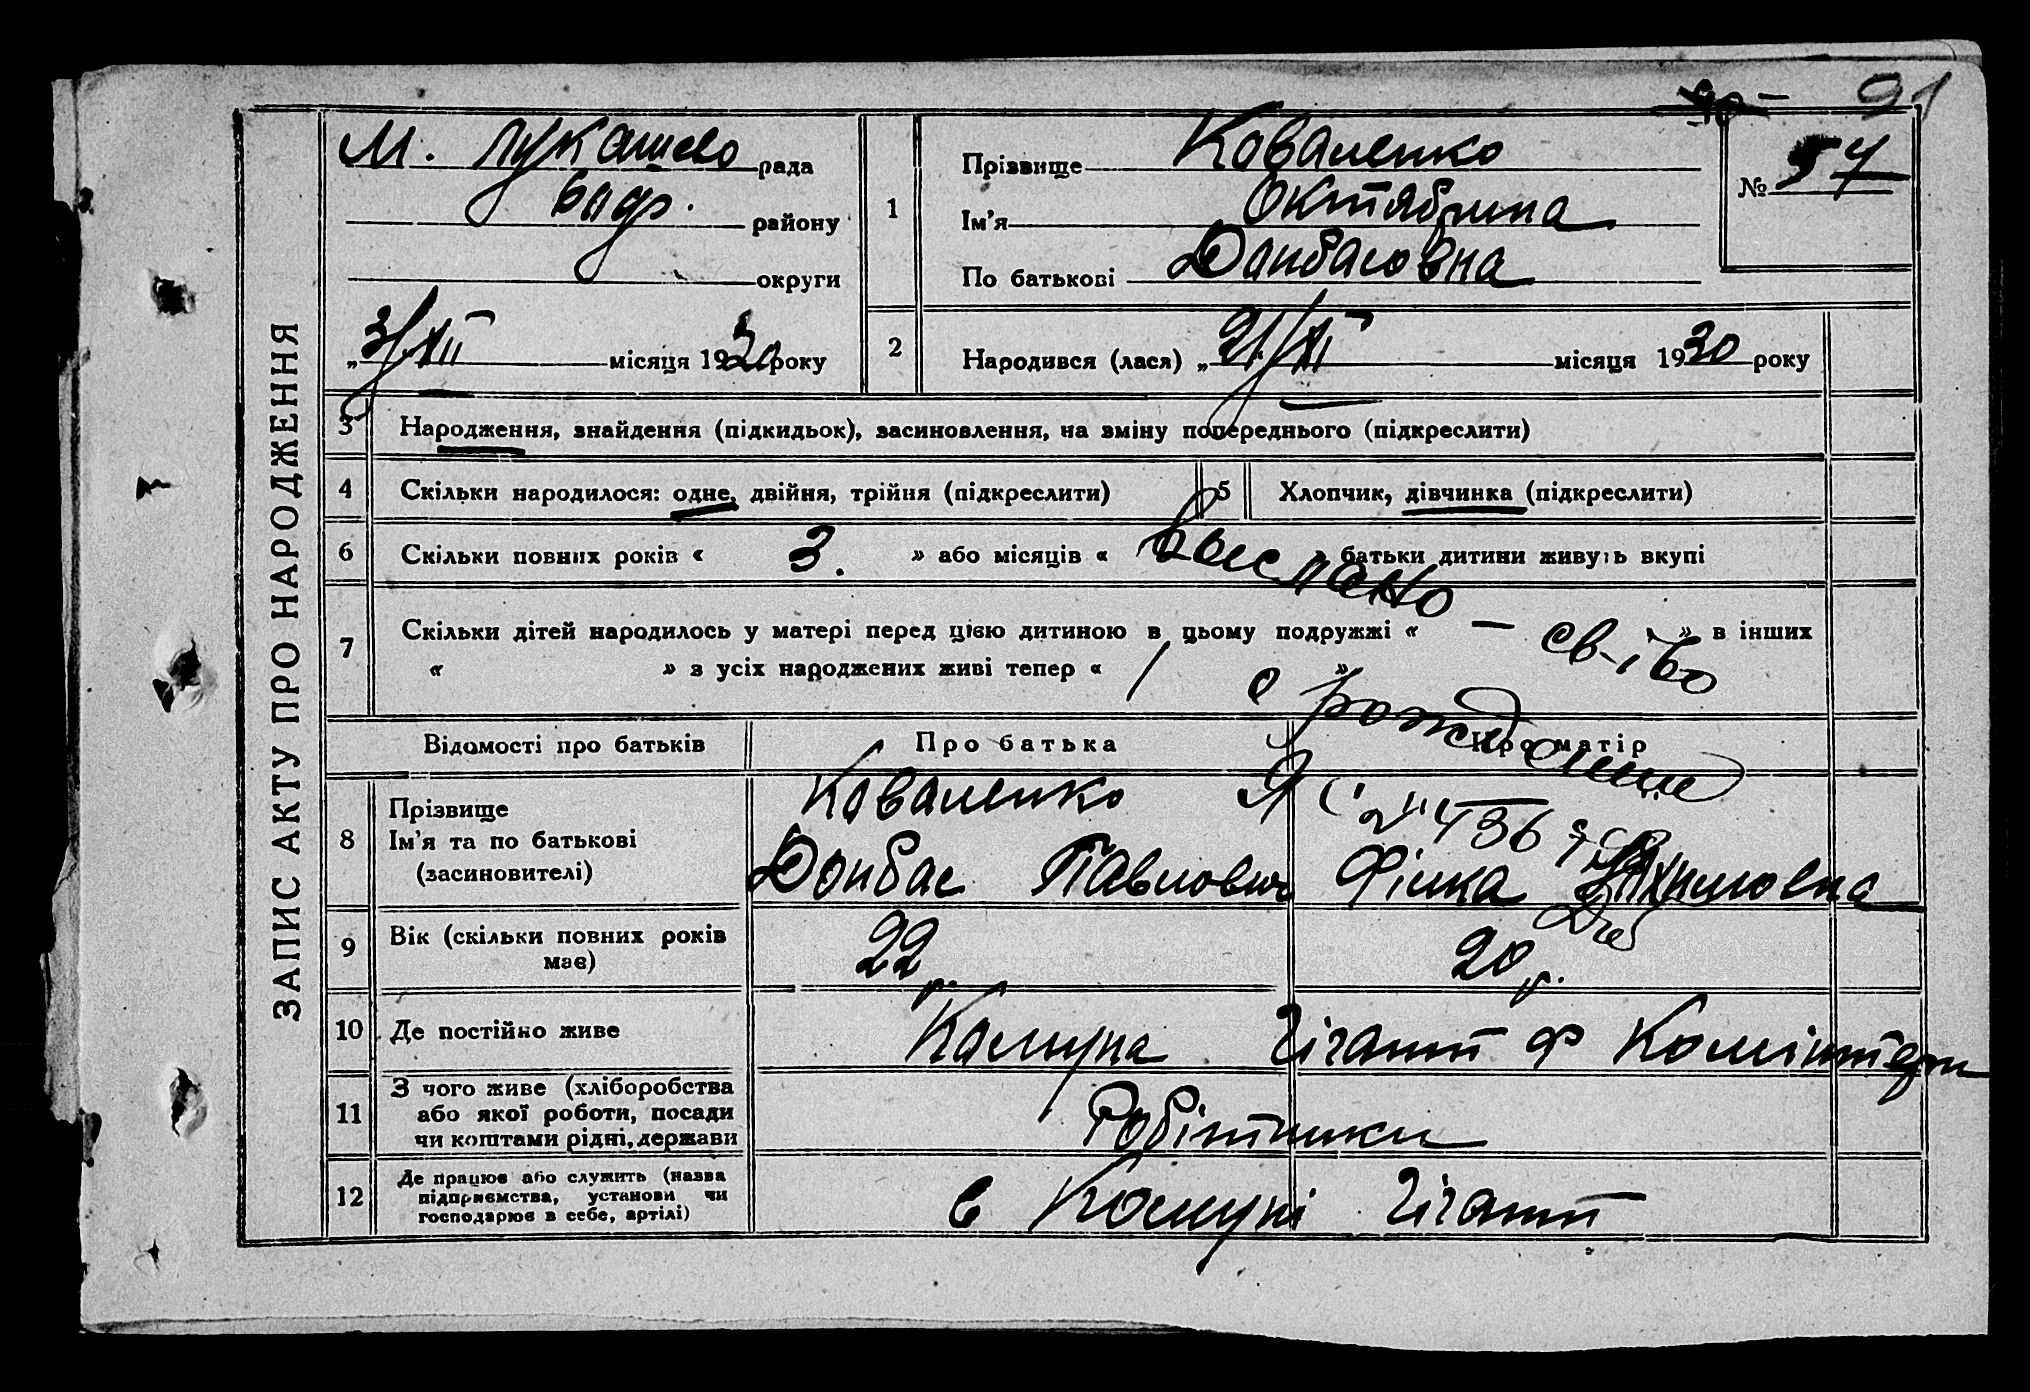 91
ЗАПИС АКТУ ПРО НАРОДЖЕННЯ
М. Лукашево рада
району
округи
„3/XII місяця 1930 року
1
Прізвище Коваленко
Ім'я Октябрина
По батькові Донбасовна
№ 57
2
Народився (лася) „21/XI місяця 1930 року
3 Народження, знайдення (підкидьок), засиновлення, на зміну попереднього (підкреслити)
4 Скільки народилося: одне, двійня, трійня (підкреслити) 5 Хлопчик, дівчинка (підкреслити)
6 Скільки повних років « 3. » або місяців « » батьки дитини живуть вкупі
7 Скільки дітей народилось у матері перед цією дитиною в цьому подружжі « — » в інших
« » з усіх народжених живі тепер « 1 »
Выслано св-во
о рождении
Відомості про батьків Про батька Про матір
8 Прізвище
Ім'я та по батькові
(засиновителі)
Коваленко
Донбас Павлович Фімка
9 Вік (скільки повних років
має)
22 р. 20 р.
10 Де постійно живе Комуна Гігант Ф Комінтерн
11 З чого живе (хліборобства
або якої роботи, посади
чи коштами рідні, держави
Робітники
12 Де працює або служить (назва
підприємства, установи чи
господарює в себе, артілі)
в Комуні Гігант